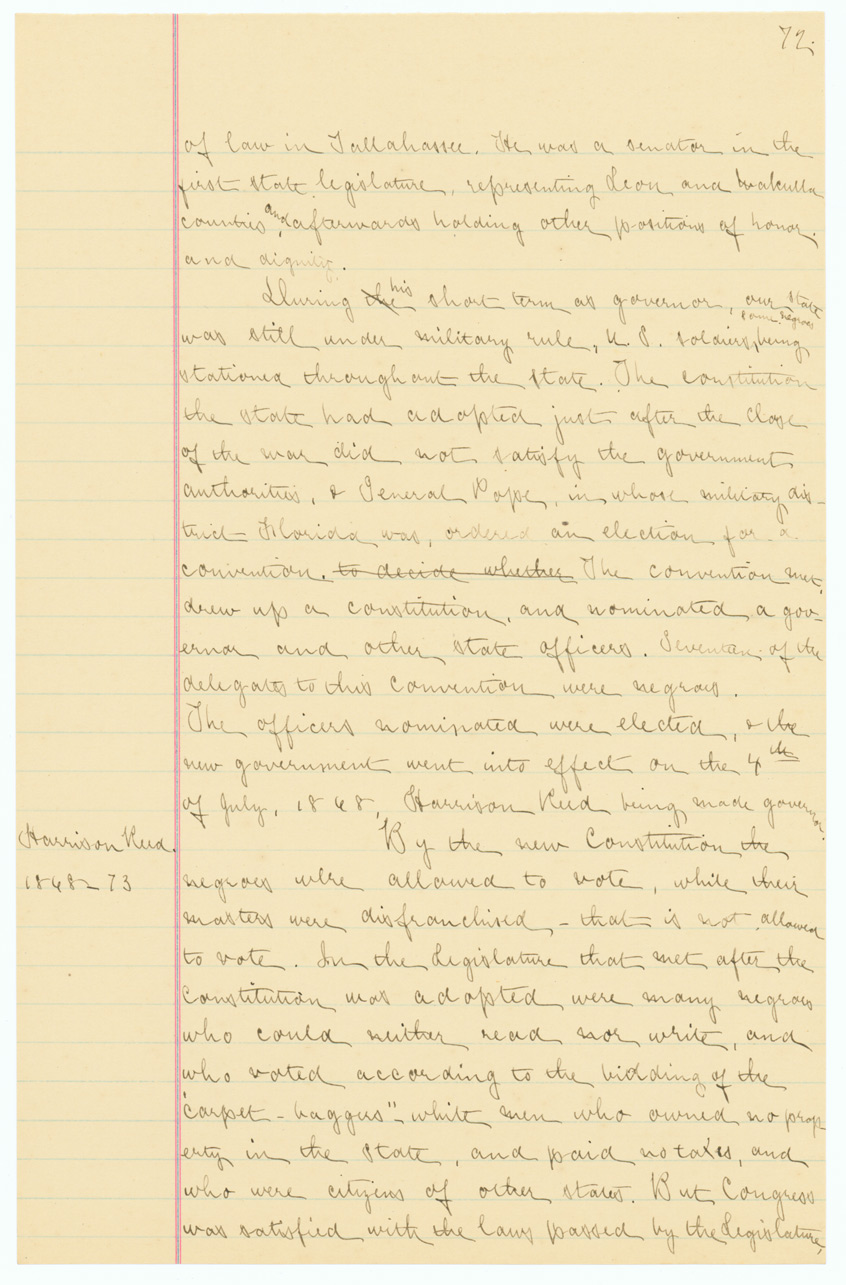 72.
of law in Tallahassee. He was a senator in the
first state legislature, representing Leon and Wakulla
counties and afterwards holding other positions of honor
and dignity.
During the his short term as governor, our state
was still under military rule, U. S. soldiers, some negroes being
stationed throughout the state. The constitution
the state had adopted just after the close
of the war did not satisfy the government
authorities, & General Pope, in whose military dis-
trict Florida was, ordered an election for a
convention. to decide whether The convention met,
drew up a constitution, and nominated a gov-
ernor and other state officers. Seventeen of the
delegates to this convention were negroes.
The officers nominated were elected, & the
new government went into effect on the 4th
of July, 1868, Harrison Reed being made governor.
Harrison Reed.
1868-73
By the new Constitution the
negroes were allowed to vote, while their
masters were disfranchised, - that is not allowed
to vote. In the Legislature that met after the
Constitution was adopted were many negroes
who could neither read nor write, and
who voted according to the bidding of the
"carpet-baggers" - white men who owned no prop-
erty in the state, and paid no taxes, and
who were citizens of other states. But Congress
was satisfied with the laws passed by the Legislature,